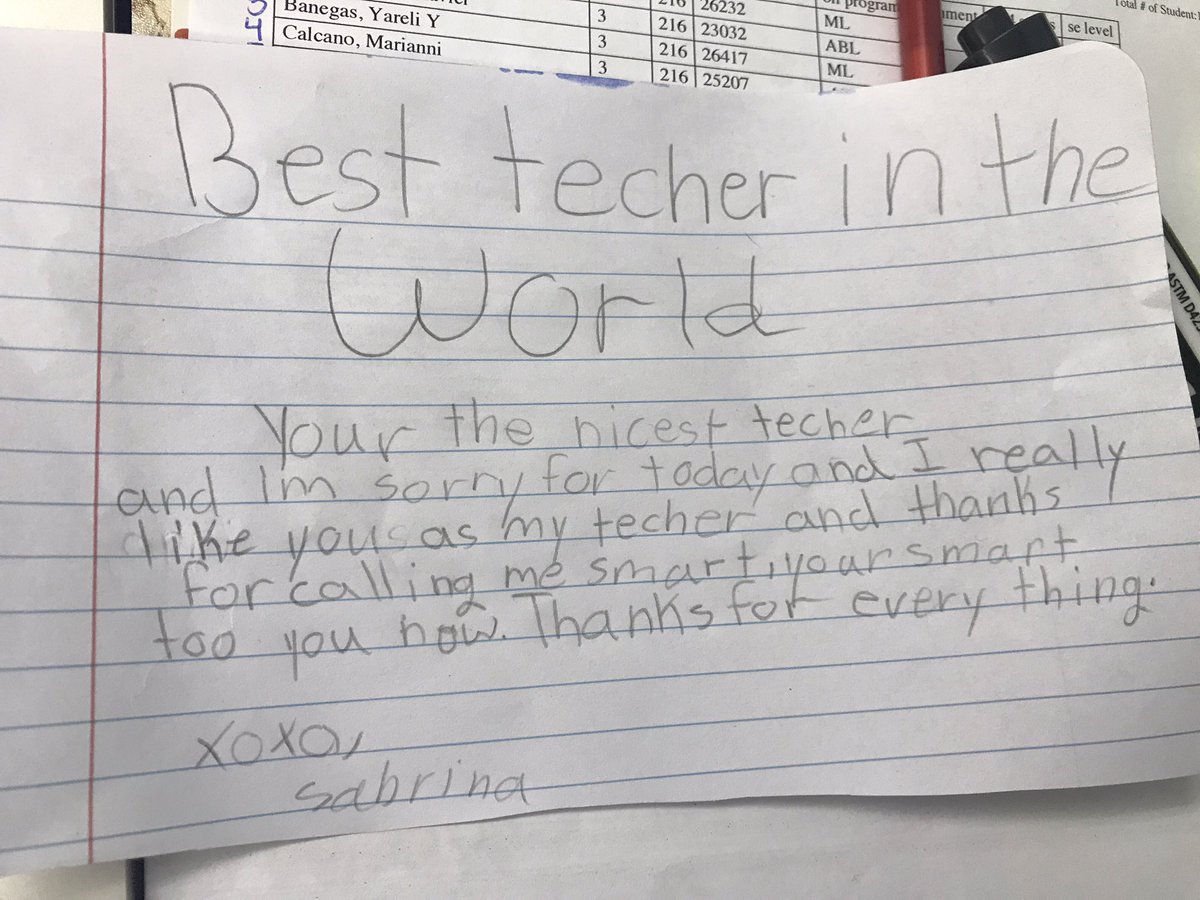 Banegas, Yareli Y 3 216 26232
Calcano, Marianni 3 216 23032 ML
3 216 26417 ABL
216 25207 ML
program
se level
Total # of Student:
ASTM D42
Best techer in the
World
Your the nicest techer
and Im sorry for today and I really
like you as my techer and thanks
for calling me smart, your smart
too you now. Thanks for every thing.
xoxo,
sabrina